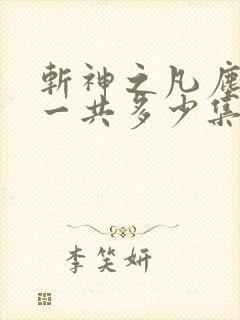 斩神之凡尘
一共多少集
李笑妍